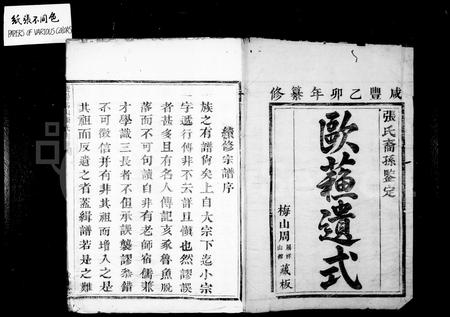 紙張不同色
PAPERS OF VARIOUS COLORS
咸豐乙卯年纂修
張氏裔孫鑒定
歐蘇遺式
梅山周
藏板
續修宗譜序
族之有譜尚矣上自大宗下迄小宗
一字遞行傳非不云詳且慎也然謬誤
者甚多且有名人傳記亥豕魯魚脫
落而不可句讀自非有老師宿儒兼
才學識三長者不但承誤襲謬叅錯
不可徵信并有非其祖而增入之是
其祖而反遺之者蓋緝譜若是之難